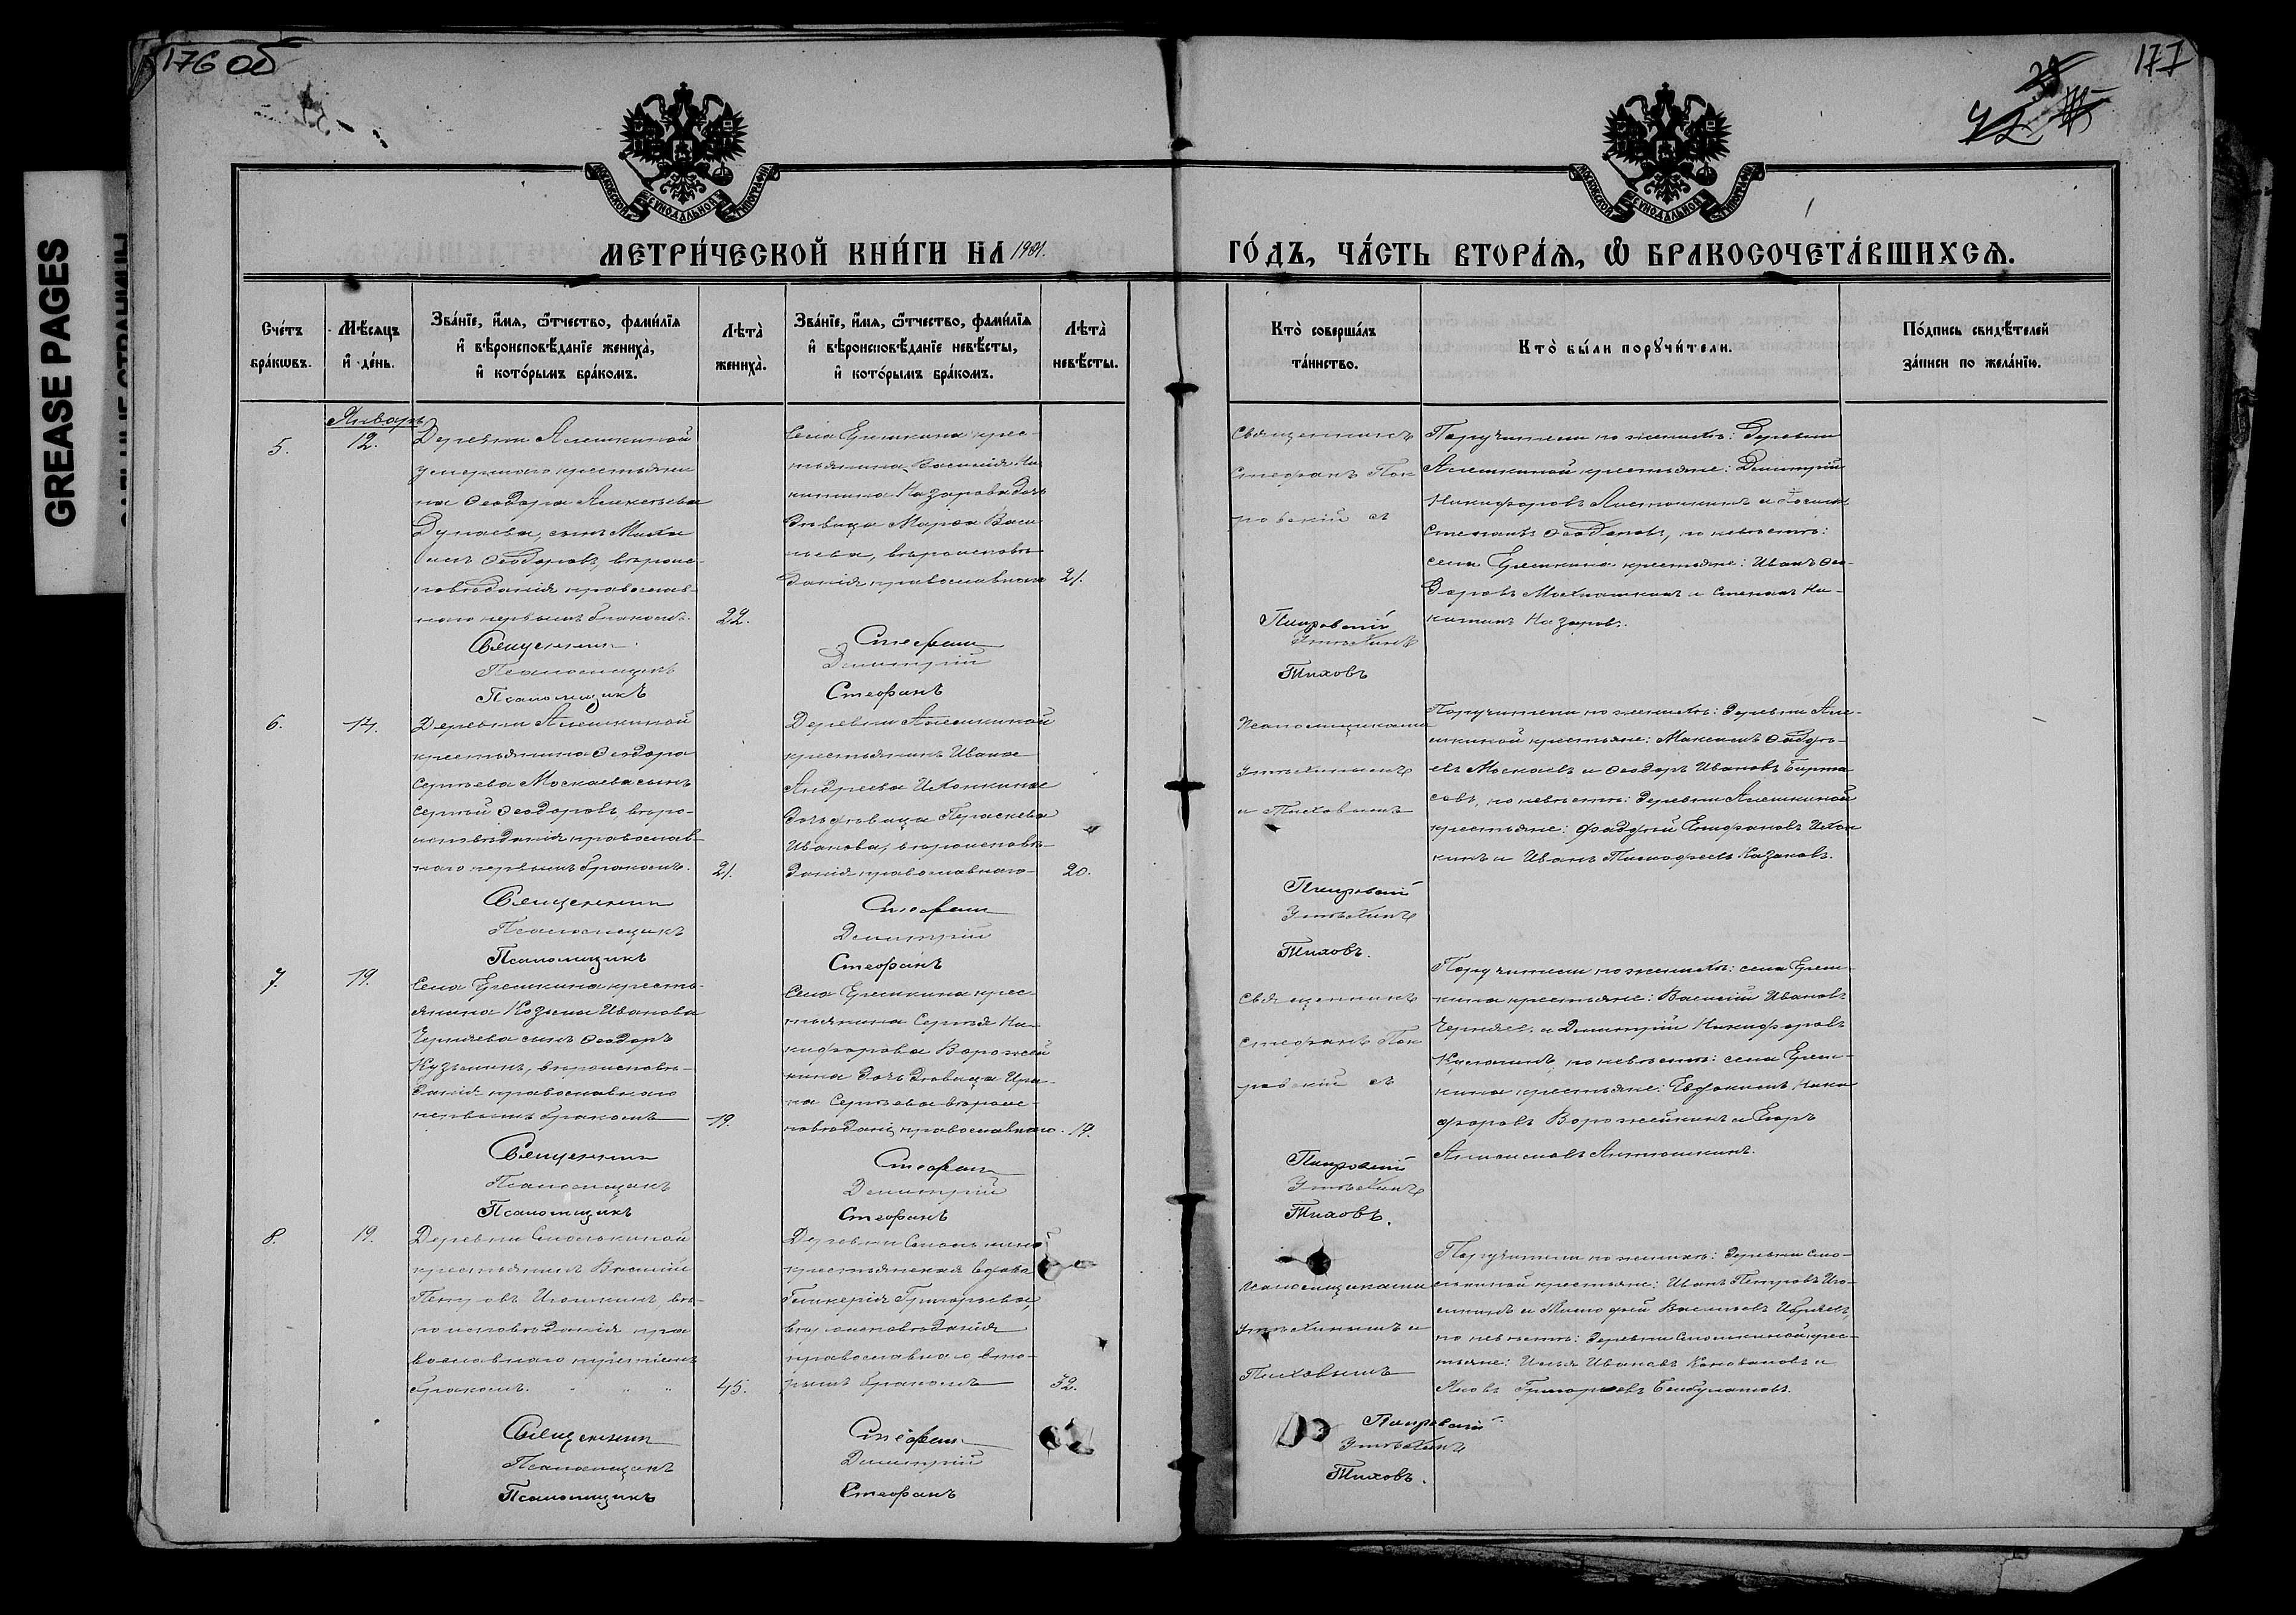 176 об
177
GREASE PAGES
МОСКОВСКОЙ СѴНОДАЛЬНОЙ ТИПОГРАФІИ
МОСКОВСКОЙ СѴНОДАЛЬНОЙ ТИПОГРАФІИ
МЕТРИ́ЧЕСКОЙ КНИ́ГИ НА 1901. ГО́ДЪ, ЧА́СТЬ ВТОРА́Я, Ѡ БРАКОСОЧЕТА́ВШИХСЯ.
Сче́тъ бра́кωвъ.
Мѣ́сяцъ и҆ де́нь.
Зва́нїе, и҆́мя, ѻ҆́тчество, фами́лїя
и҆ вѣроисповѣ́данїе жениха̀,
и҆ кото́рымъ бра́комъ.
Лѣта̀ жениха̀.
Зва́нїе, и҆́мя, ѻ҆́тчество, фами́лїя
и҆ вѣроисповѣ́данїе невѣ́сты,
и҆ кото́рымъ бра́комъ.
Лѣта̀ невѣ́сты.
Кто̀ соверша́лъ та́инство.
Кто̀ бы́ли порꙋчи́тели.
По́дпись свидѣ́телей за́писи по жела́нїю.
Январь
5.
12.
Деревни Алешкиной
умершаго крестьяни
на Ѳеодора Алексѣева
Дунаева, сынъ Миха
илъ Ѳеодоровъ, вѣроис-
повѣданія православ-
наго первымъ бракомъ.
22.
Села Еремкина крес-
тьянина Василія Ни
китина Назарова дочь
дѣвица Марѳа Васи
льева, вѣроисповѣ-
данія православнаго
21.
Священникъ
Стефанъ Пок
ровскій съ
Поручители по женихѣ: Деревни
Алешкиной крестьяне: Димитрій
Никифоровъ
Степанъ Ѳеодоровъ, по невѣстѣ:
села Еремкина крестьяне: Иванъ Ѳео-
доровъ и Степанъ Ни-
китинъ Назаровъ.
Священникъ Стефанъ Покровскій
Псаломщикъ Димитрій Утѣхинъ
Псаломщикъ Стефанъ Тиховъ
6.
14.
Деревни Алешкиной
крестьянина Ѳеодора
Сергѣева Москаева сынъ
Сергѣй Ѳеодоровъ, вѣро-
исповѣданія православ
наго первымъ бракомъ.
21.
Деревни Алешкиной
крестьянина Ивана
Андреева
дочь дѣвица Параскева
Иванова, вѣроисповѣ-
данія православнаго
20.
Псаломщиками
Утѣхинымъ
и Тиховымъ
Поручители по женихѣ: деревни Але-
шкиной крестьяне: Максимъ
Москаевъ и Ѳеодоръ Ивановъ
по невѣстѣ: деревни Алешкиной
крестьяне: Фадѣй Епифановъ
и Иванъ Тимофеевъ Казаковъ.
Священникъ Стефанъ Покровскій
Псаломщикъ Димитрій Утѣхинъ
Псаломщикъ Стефанъ Тиховъ.
7.
19.
Села Еремкина кресть-
янина Козьмы Иванова
Черняева сынъ Ѳеодоръ
Кузьминъ, вѣроисповѣ-
данія православнаго
первымъ бракомъ
19.
Села Еремкина крес-
тьянина Сергѣя Ни-
кифорова Ворожей
кина дочь дѣвица Ири-
на Сергѣева вѣроис-
повѣданія православнаго.
Священникъ
Стефанъ Пок
ровскій съ
Поручители по женихѣ: села Ерем-
кина крестьяне: Василій Ивановъ
Черняевъ и Димитрій Никифоровъ
по невѣстѣ: села Ерем-
кина крестьяне: Евдокимъ Ники
форовъ Ворожейкинъ и Егоръ
Антошкинъ.
Священникъ Стефанъ Покровскій
Псаломщикъ Димитрій Утѣхинъ
Псаломщикъ Стефанъ Тиховъ.
8.
19.
Деревни Смолькиной
крестьянинъ Василій
Петровъ вѣ-
роисповѣданія пра
вославнаго третьимъ
бракомъ.
45.
Деревни
крестьянская вдова
Гликерія Григорьева,
вѣроисповѣданія
православнаго вто-
рымъ бракомъ
32.
псаломщиками
Утѣхинымъ и
Тиховымъ
Поручители по женихѣ: деревни Смо-
лькиной крестьяне: Иванъ Петровъ
и Тимофей Васильевъ
по невѣстѣ: деревни Смолькиной крес-
тьяне: Илья Ивановъ Коноваловъ и
Яковъ Григорьевъ
Священникъ Стефанъ Покровскій
Псаломщикъ Димитрій Утѣхинъ
Псаломщикъ Стефанъ Тиховъ.